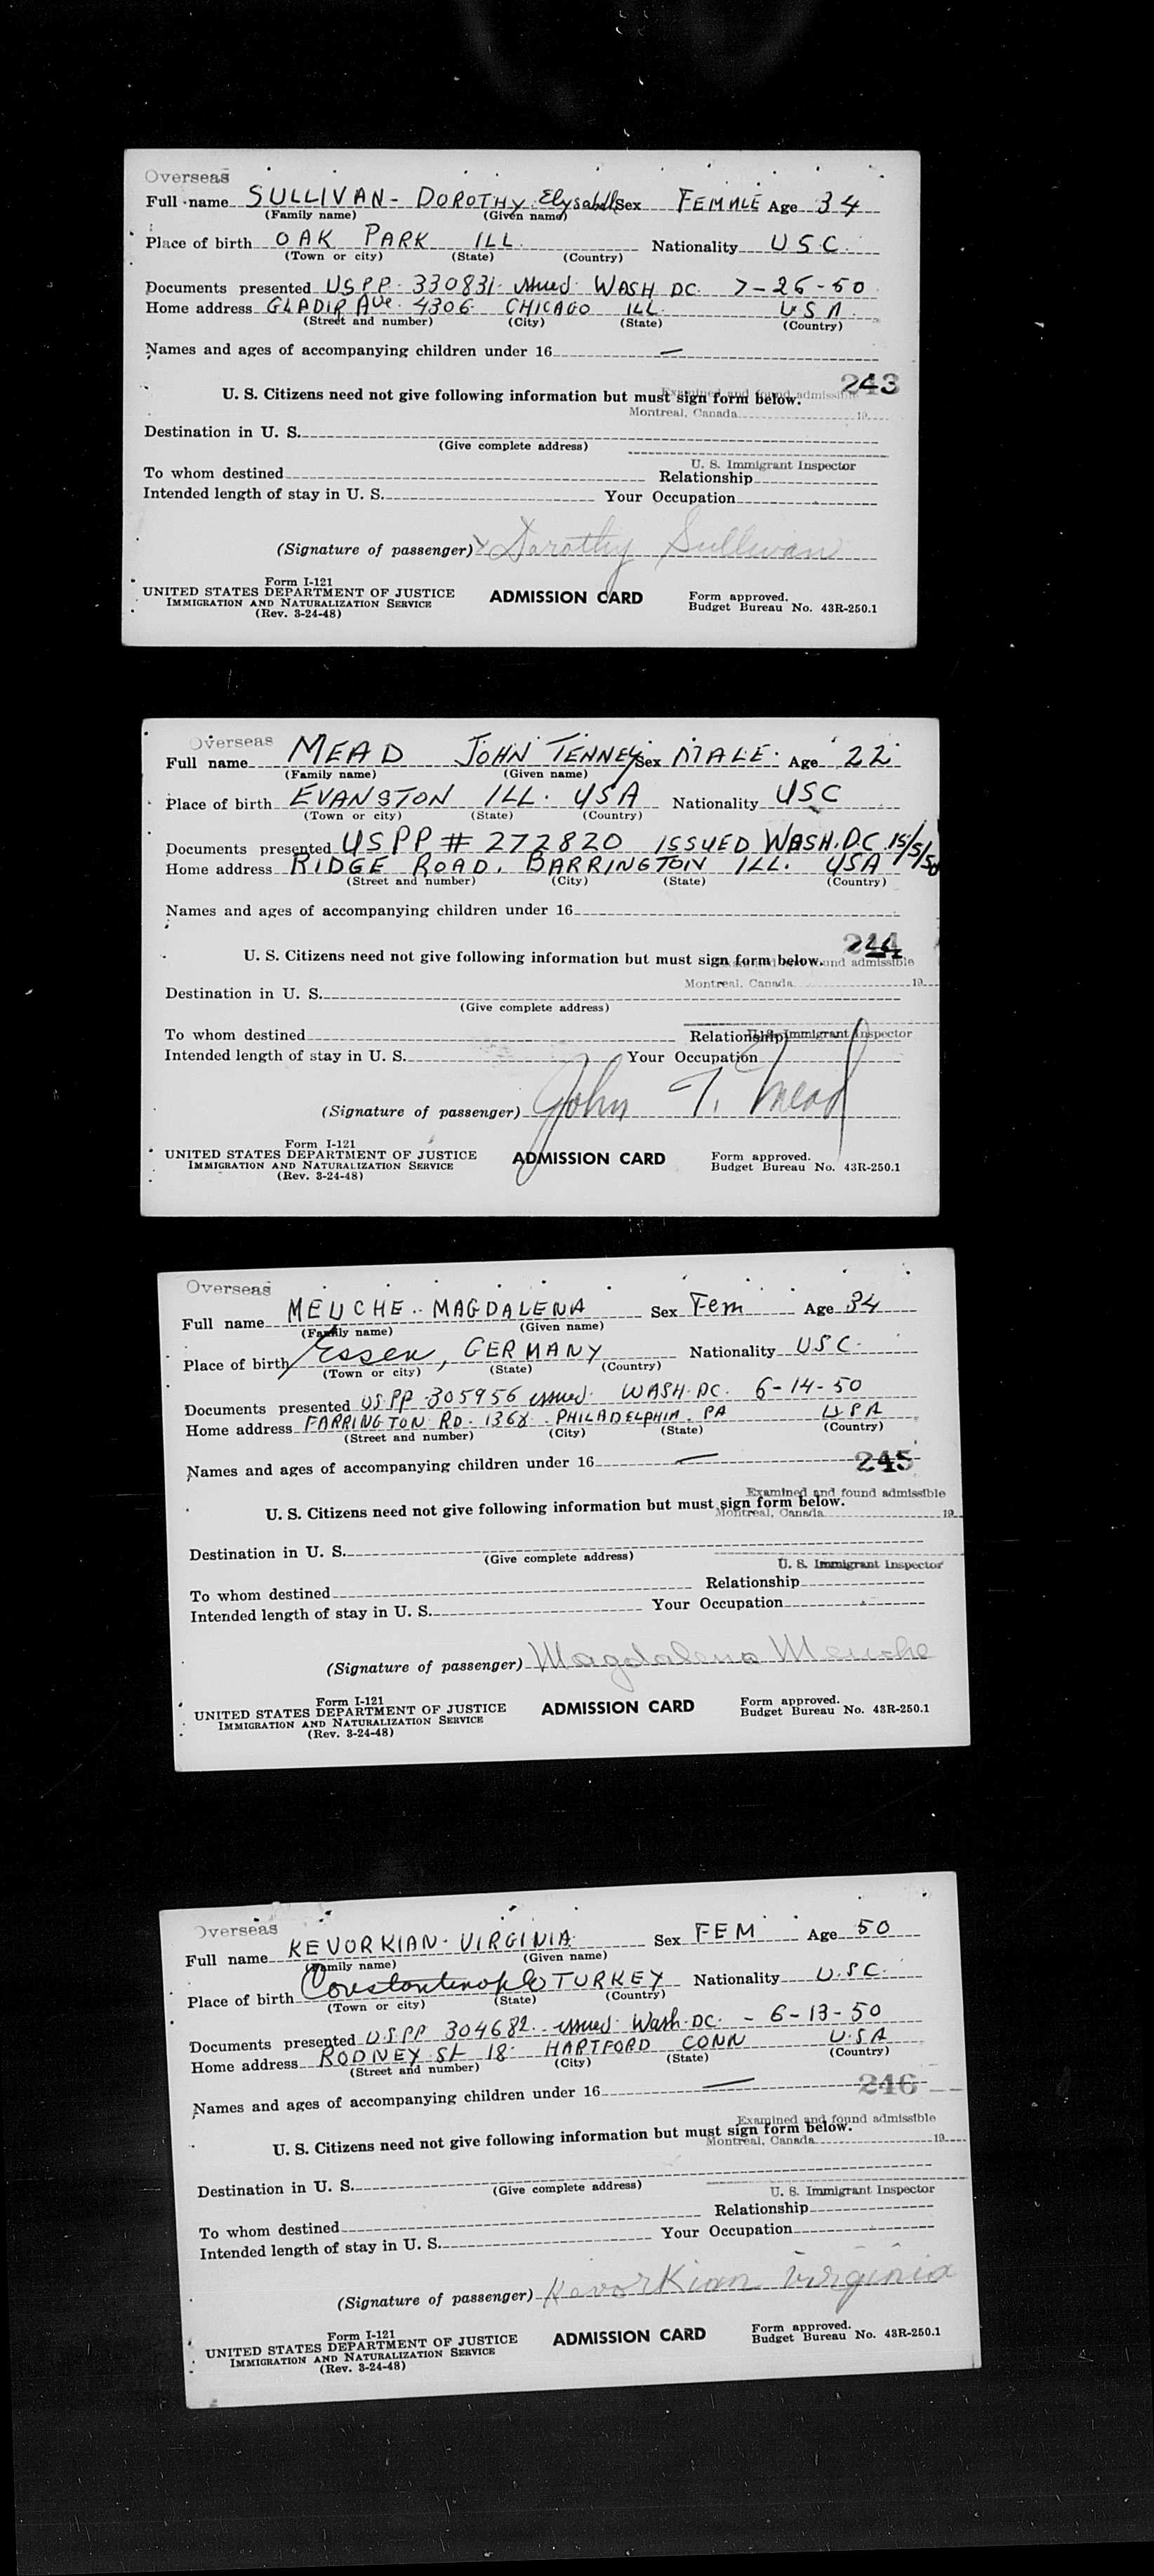 Overseas
Full name SULLIVAN - DOROTHY Elysabeth Sex FEMALE Age 34
(Family name) (Given name)
Place of birth OAK PARK ILL. Nationality U S C.
(Town or city) (State) (Country)
Documents presented USPP. 330831. issued. WASH DC. 7-26-50
Home address Ave. 4306 CHICAGO ILL. U S A.
(Street and number) (City) (State) (Country)
Names and ages of accompanying children under 16 —
243
U. S. Citizens need not give following information but must sign form below.
Examined and found admissible
Montreal, Canada 19
Destination in U. S.
(Give complete address)
U. S. Immigrant Inspector
To whom destined Relationship
Intended length of stay in U. S. Your Occupation
(Signature of passenger) x Dorothy Sullivan
Form I-121
UNITED STATES DEPARTMENT OF JUSTICE
IMMIGRATION AND NATURALIZATION SERVICE
(Rev. 3-24-48)
ADMISSION CARD
Form approved.
Budget Bureau No. 43R-250.1
Overseas
Full name MEAD JOHN TENNEY Sex MALE. Age 22
(Family name) (Given name)
Place of birth EVANSTON ILL. USA Nationality USC
(Town or city) (State) (Country)
Documents presented USPP # 272820 ISSUED WASH. D.C. 15/5/50
Home address RIDGE ROAD, BARRINGTON ILL. USA
(Street and number) (City) (State) (Country)
Names and ages of accompanying children under 16
244
U. S. Citizens need not give following information but must sign form below.
Examined and found admissible
Montreal, Canada 19
Destination in U. S.
(Give complete address)
U. S. Immigrant Inspector
To whom destined Relationship
Intended length of stay in U. S. Your Occupation
(Signature of passenger) John T. Mead
Form I-121
UNITED STATES DEPARTMENT OF JUSTICE
IMMIGRATION AND NATURALIZATION SERVICE
(Rev. 3-24-48)
ADMISSION CARD
Form approved.
Budget Bureau No. 43R-250.1
Overseas
Full name MEUCHE.. MAGDALENA Sex Fem Age 34
(Family name) (Given name)
Place of birth Essen, GERMANY Nationality USC.
(Town or city) (State) (Country)
Documents presented US.PP. 305956 issued. WASH. DC. 6-14-50
Home address FARRINGTON RD. PHILADELPHIA. PA USA
(Street and number) (City) (State) (Country)
Names and ages of accompanying children under 16 —
245
Examined and found admissible
U. S. Citizens need not give following information but must sign form below.
Montreal, Canada 19
Destination in U. S.
(Give complete address)
U. S. Immigrant Inspector
To whom destined Relationship
Intended length of stay in U. S. Your Occupation
(Signature of passenger) Magdalena Meuche
Form I-121
UNITED STATES DEPARTMENT OF JUSTICE
IMMIGRATION AND NATURALIZATION SERVICE
(Rev. 3-24-48)
ADMISSION CARD
Form approved.
Budget Bureau No. 43R-250.1
Overseas
Full name KEVORKIAN. VIRGINIA. Sex FEM Age 50
(Family name) (Given name)
Place of birth Constantinople TURKEY Nationality U.S.C.
(Town or city) (State) (Country)
Documents presented U.S.PP 304682. issued. Wash. DC. - 6-13-50
Home address RODNEY St 18. HARTFORD CONN U.S.A
(Street and number) (City) (State) (Country)
Names and ages of accompanying children under 16 —
246
Examined and found admissible
U. S. Citizens need not give following information but must sign form below.
Montreal, Canada 19
Destination in U. S.
(Give complete address)
U. S. Immigrant Inspector
To whom destined Relationship
Intended length of stay in U. S. Your Occupation
(Signature of passenger) Kevorkian Virginia
Form I-121
UNITED STATES DEPARTMENT OF JUSTICE
IMMIGRATION AND NATURALIZATION SERVICE
(Rev. 3-24-48)
ADMISSION CARD
Form approved.
Budget Bureau No. 43R-250.1